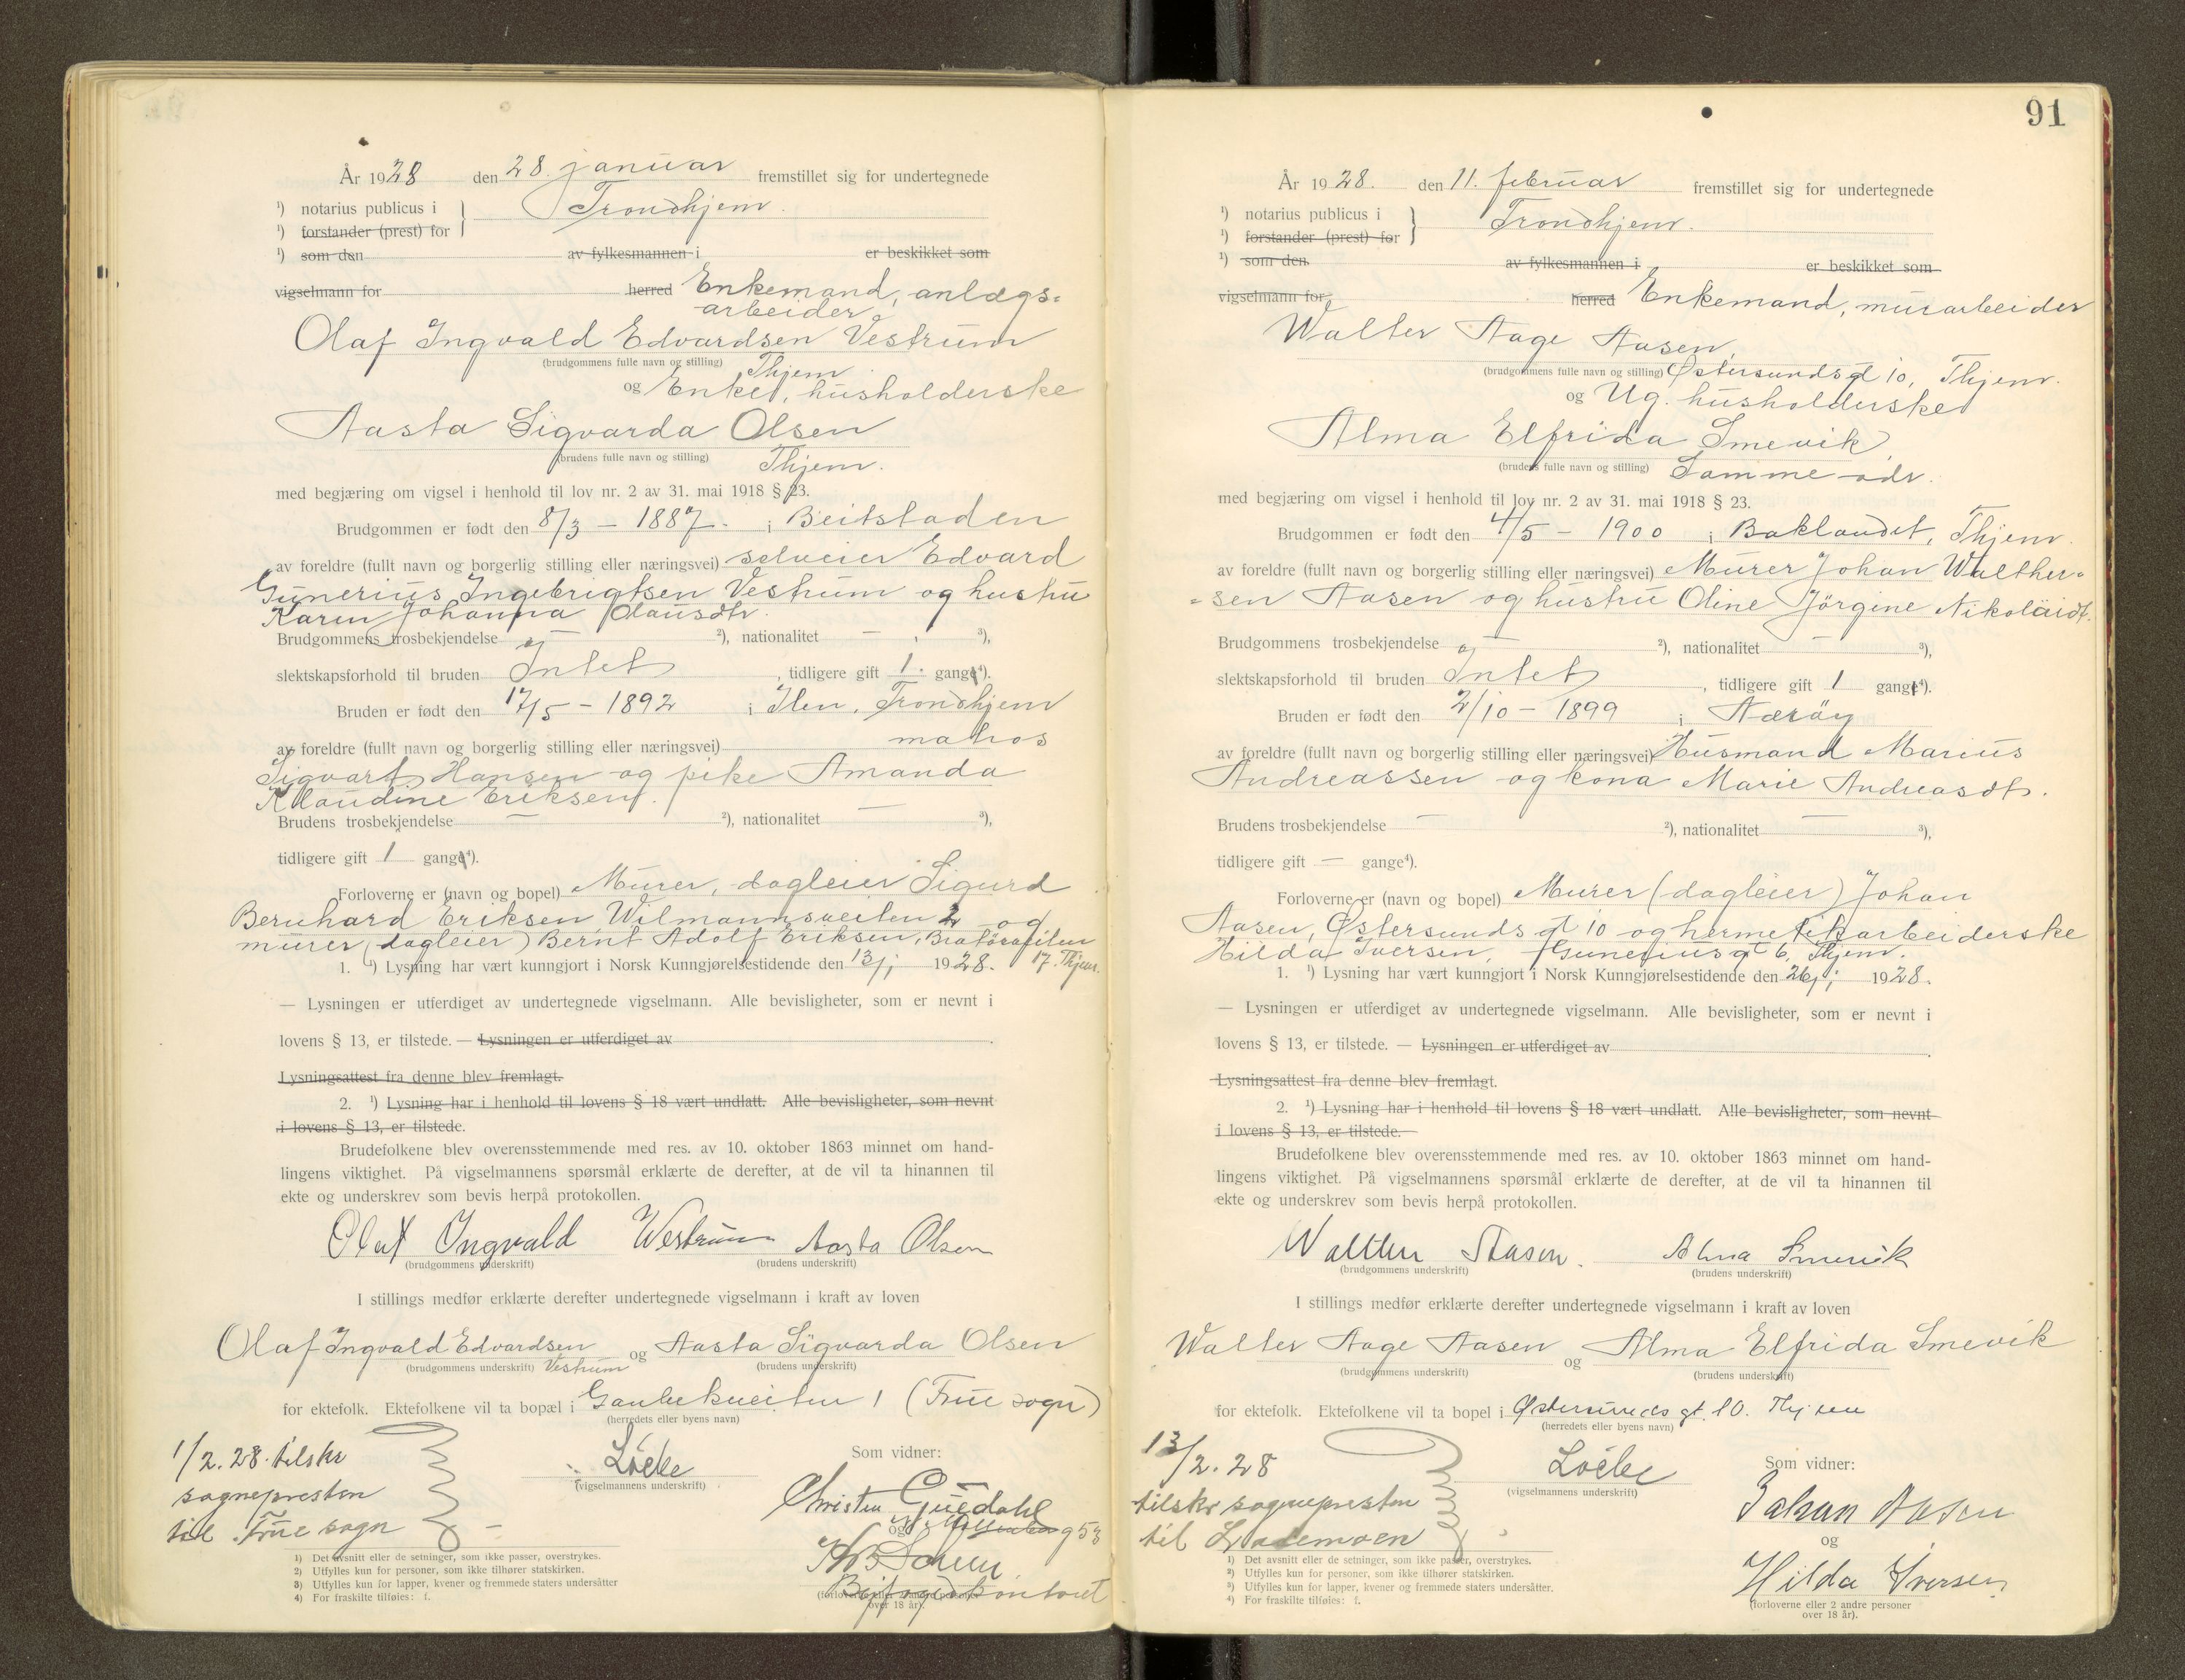 År 1928 den 28. januar fremstillet sig for undertegnede
¹) notarius publicus i } Trondhjem.
¹) forstander (prest) for
¹) som den av fylkesmannen i er beskikket som
vigselmann for herred Enkemand, anlægs=
arbeider
Olaf Ingvald Edvardsen Vestrum
(brudgommens fulle navn og stilling) Thjem
og Enke, husholderske
Aasta Sigvarda Olsen
(brudens fulle navn og stilling) Thjem.
med begjæring om vigsel i henhold til lov nr. 2 av 31. mai 1918 § 23.
Brudgommen er født den 8/3 – 1887. i Beitstaden
av foreldre (fullt navn og borgerlig stilling eller næringsvei) selveier Edvard
Gunerius Ingebrigtsen Vestrum og hustru
Karen Johanna Olausdtr.
Brudgommens trosbekjendelse — ²), nationalitet — , ³),
slektskapsforhold til bruden Intet , tidligere gift 1. gange⁴).
Bruden er født den 17/5 – 1892 i Ilen, Trondhjem
av foreldre (fullt navn og borgerlig stilling eller næringsvei) matros
Sigvart Hansen og pike Amanda
Klaudine Eriksen.
Brudens trosbekjendelse — ²), nationalitet — ³),
tidligere gift 1 gange⁴).
Forloverne er (navn og bopel) Murer, dagleier Sigurd
Bernhard Eriksen Wilmannsveiten 2 og
murer (dagleier) Bernt Adolf Eriksen,
17. Thjem.
1. ¹) Lysning har vært kunngjort i Norsk Kunngjørelsestidende den 13/1 1928.
— Lysningen er utferdiget av undertegnede vigselmann. Alle bevisligheter, som er nevnt i
lovens § 13, er tilstede. — Lysningen er utferdiget av .
Lysningsattest fra denne blev fremlagt.
2. ¹) Lysning har i henhold til lovens § 18 vært undlatt. Alle bevisligheter, som nevnt
i lovens § 13, er tilstede.
Brudefolkene blev overensstemmende med res. av 10. oktober 1863 minnet om hand-
lingens viktighet. På vigselmannens spørsmål erklærte de derefter, at de vil ta hinannen til
ekte og underskrev som bevis herpå protokollen.
Olaf Ingvald Westrum Aasta Olsen
(brudgommens underskrift) (brudens underskrift)
I stillings medfør erklærte derefter undertegnede vigselmann i kraft av loven
Olaf Ingvald Edvardsen og Aasta Sigvarda Olsen
(brudgommens underskrift) Vestrum (brudens underskrift)
for ektefolk. Ektefolkene vil ta bopæl i Gaubekveiten 1 (Frue sogn)
(herredets eller byens navn)
1/2. 28. tilskr
sognepresten
til Frue sogn
(vigselmannens underskrift)
Som vidner:
Christen
og
(forloverne eller 2 andre personer
over 18 år).
¹) Det avsnitt eller de setninger, som ikke passer, overstrykes.
²) Utfylles kun for personer, som ikke tilhører statskirken.
³) Utfylles kun for lapper, kvener og fremmede staters undersåtter
⁴) For fraskilte tilføies: f.
91
År 1928. den 11. februar fremstillet sig for undertegnede
¹) notarius publicus i } Trondhjem.
¹) forstander (prest) for
¹) som den av fylkesmannen i er beskikket som
vigselmann for herred Enkemand, murarbeider
Walter Aage Aasen,
(brudgommens fulle navn og stilling) Østersundsgt 10, Thjem.
og Ug. husholderske
Alma Elfrida Smevik,
(brudens fulle navn og stilling) Samme adr.
med begjæring om vigsel i henhold til lov nr. 2 av 31. mai 1918 § 23.
Brudgommen er født den 4/5 – 1900 i Baklandet, Thjem.
av foreldre (fullt navn og borgerlig stilling eller næringsvei) Murer Johan Walther=
=sen Aasen og hustru Oline Jörgine Nikolaidt.
Brudgommens trosbekjendelse — ²), nationalitet — ³),
slektskapsforhold til bruden Intet , tidligere gift 1 gange⁴).
Bruden er født den 2/10 – 1899 i Nærøy
av foreldre (fullt navn og borgerlig stilling eller næringsvei) Husmand Marius
Andreassen og kona Marie Andreasdt.
Brudens trosbekjendelse — ²), nationalitet — ³),
tidligere gift — gange⁴).
Forloverne er (navn og bopel) Murer (dagleier) Johan
Aasen, Østersundsgt 10 og hermetikarbeiderske
Hilda Iversen, Guneriusgt 6, Thjem.
1. ¹) Lysning har vært kunngjort i Norsk Kunngjørelsestidende den 26/1 1928.
— Lysningen er utferdiget av undertegnede vigselmann. Alle bevisligheter, som er nevnt i
lovens § 13, er tilstede. — Lysningen er utferdiget av .
Lysningsattest fra denne blev fremlagt.
2. ¹) Lysning har i henhold til lovens § 18 vært undlatt. Alle bevisligheter, som nevnt
i lovens § 13, er tilstede.
Brudefolkene blev overensstemmende med res. av 10. oktober 1863 minnet om hand-
lingens viktighet. På vigselmannens spørsmål erklærte de derefter, at de vil ta hinannen til
ekte og underskrev som bevis herpå protokollen.
Walther Aasen. Alma Smevik
(brudgommens underskrift) (brudens underskrift)
I stillings medfør erklærte derefter undertegnede vigselmann i kraft av loven
Walter Aage Aasen og Alma Elfrida Smevik
(brudgommens underskrift) (brudens underskrift)
for ektefolk. Ektefolkene vil ta bopel i Østersundsgt. 10. Thjem
(herredets eller byens navn)
13/2. 28
tilskr sognepresten
til Lademoen
(vigselmannens underskrift)
Som vidner:
Johan Aasen
og
Hilda Iversen
(forloverne eller 2 andre personer
over 18 år).
¹) Det avsnitt eller de setninger, som ikke passer, overstrykes.
²) Utfylles kun for personer, som ikke tilhører statskirken.
³) Utfylles kun for lapper, kvener og fremmede staters undersåtter.
⁴) For fraskilte tilføies: f.